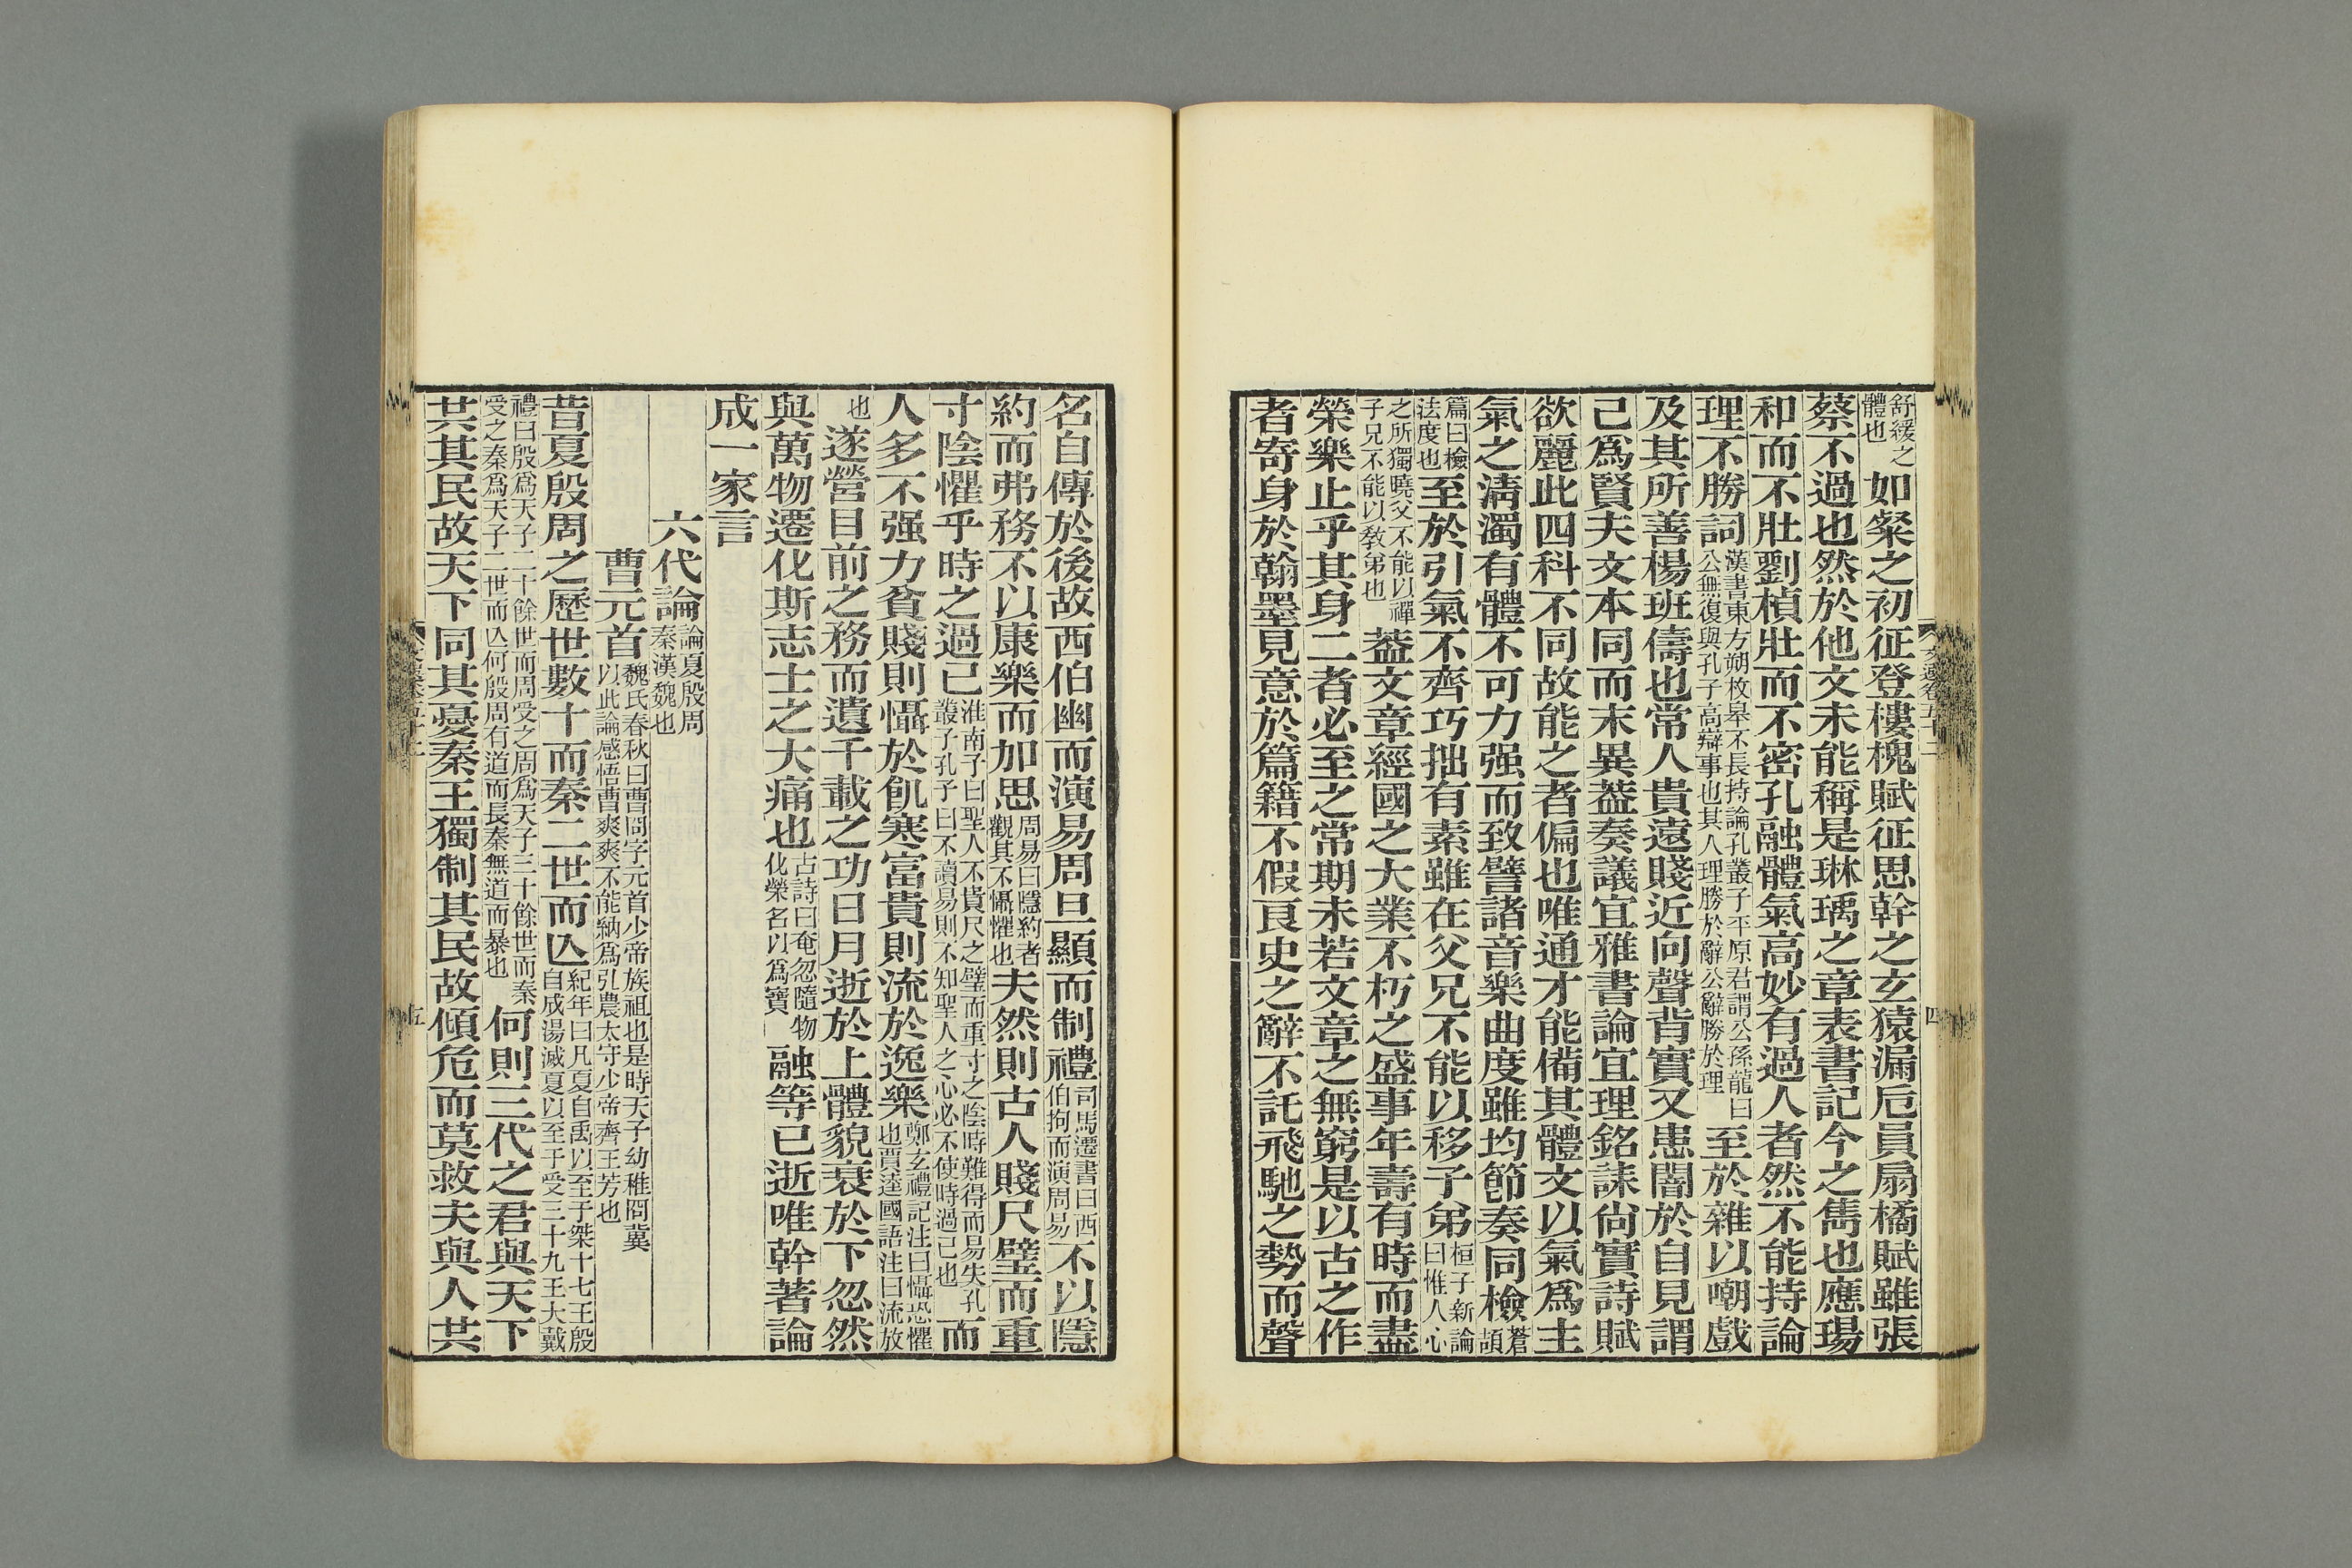 舒緩之體也如粲之初征登樓槐賦征思幹之玄猿漏卮員扇橘賦雖張
蔡不過也然於他文未能稱是琳瑀之章表書記今之雋也應瑒
和而不壯劉楨壯而不密孔融體氣高妙有過人者然不能持論
理不勝詞漢書東方朔枚皋不長持論孔叢子平原君謂公孫龍曰公無復與孔子高辯事也其人理勝於辭公辭勝於理至於雜以嘲戲
及其所善楊班儔也常人貴遠賤近向聲背實又患闇於自見謂
己爲賢夫文本同而末異葢奏議宜雅書論宜理銘誄尙實詩賦
欲麗此四科不同故能之者偏也唯通才能備其體文以氣爲主
氣之淸濁有體不可力强而致譬諸音樂曲度雖均節奏同檢蒼頡
篇曰檢法度也至於引氣不齊巧拙有素雖在父兄不能以移子弟桓子新論曰惟人心
之所獨曉父不能以禪子兄不能以敎弟也葢文章經國之大業不朽之盛事年壽有時而盡
榮樂止乎其身二者必至之常期未若文章之無窮是以古之作
者寄身於翰墨見意於篇籍不假良史之辭不託飛馳之勢而聲
名自傳於後故西伯幽而演易周旦顯而制禮司馬遷書曰西伯拘而演周易不以隱
約而弗務不以康樂而加思周易曰隱約者觀其不懾懼也夫然則古人賤尺璧而重
寸陰懼乎時之過已淮南子曰聖人不貴尺之璧而重寸之陰時難得而易失孔叢子孔子曰不讀易則不知聖人之心必不使時過己也而
人多不强力貧賤則懾於飢寒富貴則流於逸樂鄭玄禮記注曰懾恐懼也賈逵國語注曰流放
也遂營目前之務而遺千載之功日月逝於上體貌衰於下忽然
與萬物遷化斯志士之大痛也古詩曰奄忽隨物化榮名以爲寶融等已逝唯幹著論
成一家言
六代論論夏殷周秦漢魏也
曹元首魏氏春秋曰曹冏字元首少帝族祖也是時天子幼稚冏冀以此論感悟曹爽爽不能納爲弘農太守少帝齊王芳也
昔夏殷周之歷世數十而秦二世而亾紀年曰凡夏自禹以至于桀十七王殷自成湯滅夏以至于受二十九王大戴
禮曰殷爲天子二十餘世而周受之周爲天子三十餘世而秦受之秦爲天子二世而亾何殷周有道而長秦無道而暴也何則三代之君與天下
共其民故天下同其憂秦王獨制其民故傾危而莫救夫與人共
文選卷五十二
四
五